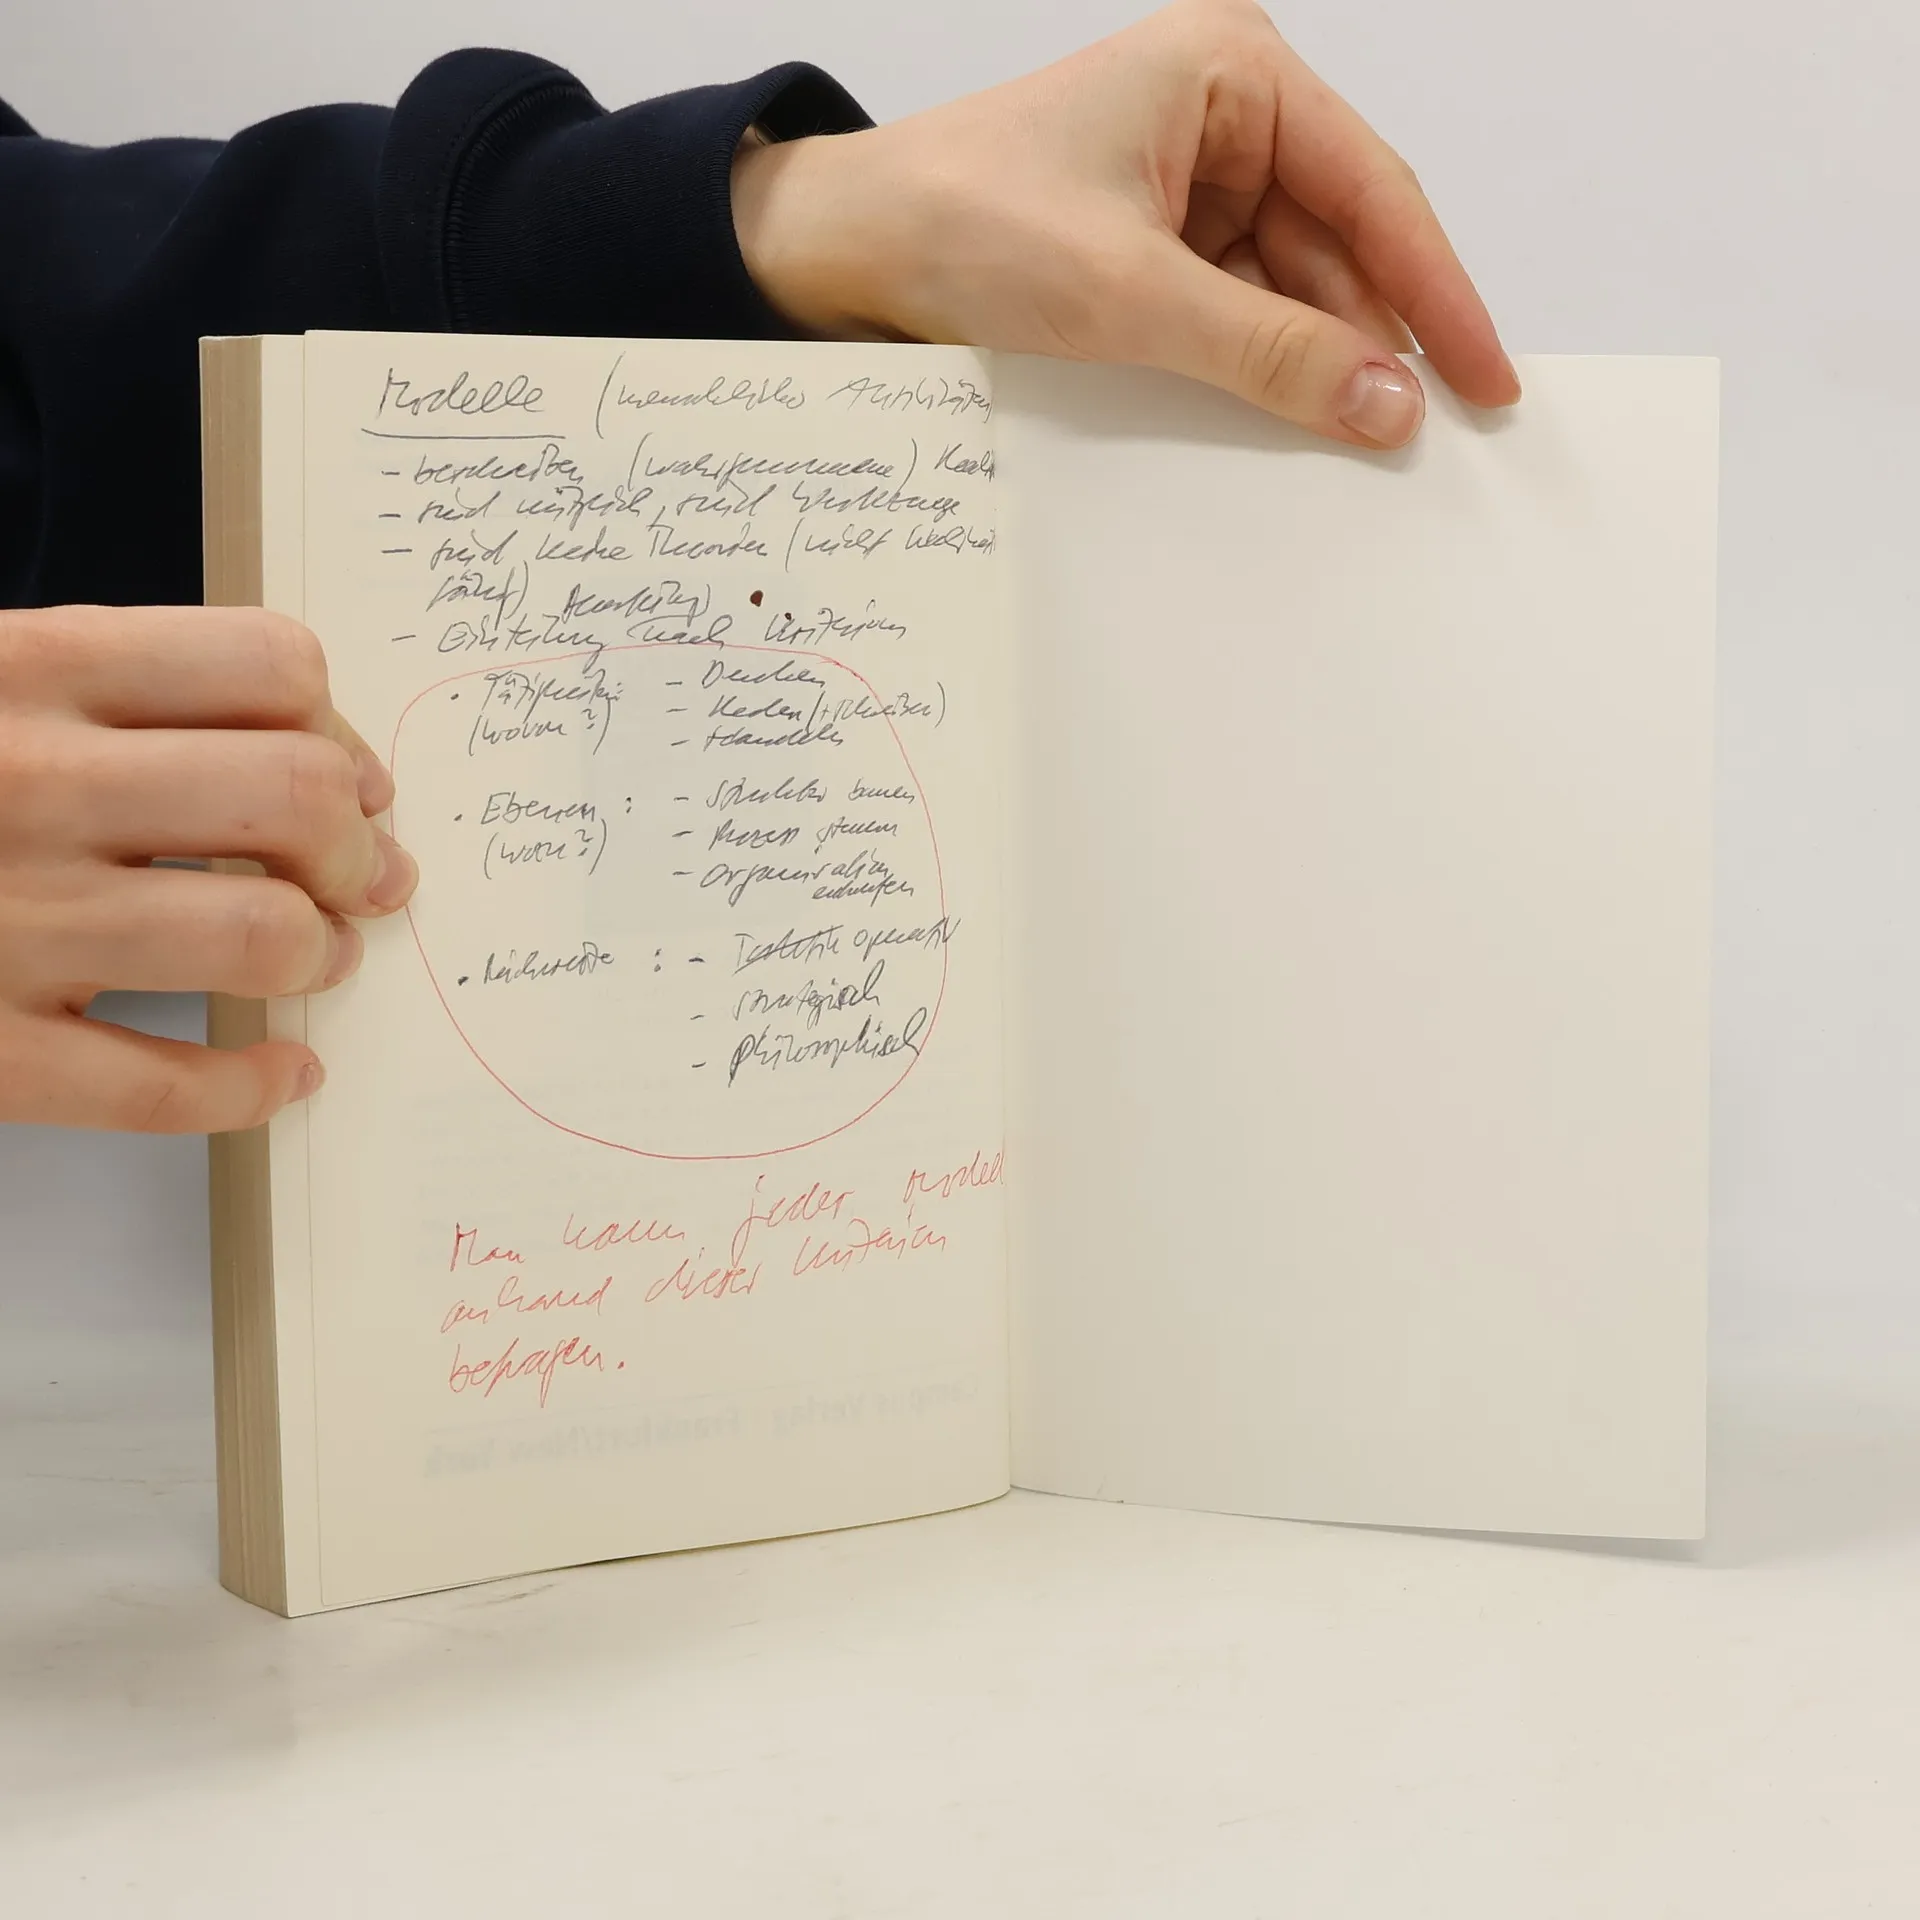 Modelle (menschliche
- beschreiben (wahrgenommene) Reali
- sind nützlich, sind Werkzeuge
- sind keine Theorien (nicht Wahrheits
fähig)
- Einteilung nach Kriterien
• Tätigkeiten: - Denken
(wovon?) - Reden (+ Schreiben)
- Handeln
• Ebenen : - Struktur bauen
(woran?) - Prozess steuern
- Organisation
entwerfen
• Reichweite : - operativ
- strategisch
- philosophisch
Man kann jeder Modell
anhand dieser Kriterien
befragen.
Campus Verlag
Frankfurt/New York